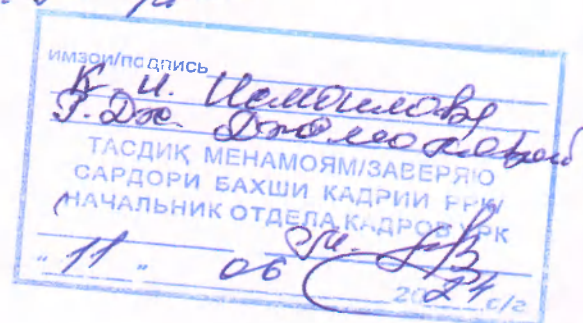 имзои/подпись
К. И. Исмаилова
Г. Дж. Джамаловой
ТАСДИҚ МЕНАМОЯМ/ЗАВЕРЯЮ
САРДОРИ БАХШИ КАДРИИ РРК/
НАЧАЛЬНИК ОТДЕЛА КАДРОВ УРК
"11" 06 2024 с/г